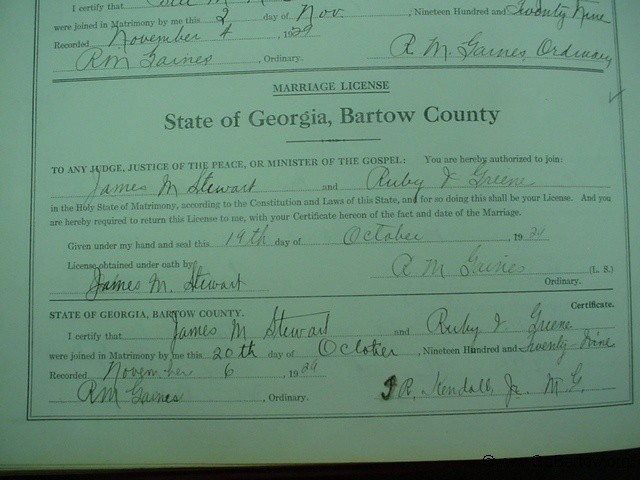 I certify that
were joined in Matrimony by me this 2 day of Nov. , Nineteen Hundred and Twenty Nine
Recorded November 4 , 1929
RM Gaines , Ordinary. R. M. Gaines, Ordinary
MARRIAGE LICENSE
State of Georgia, Bartow County
TO ANY JUDGE, JUSTICE OF THE PEACE, OR MINISTER OF THE GOSPEL: You are hereby authorized to join:
James M Stewart and Ruby I Greene
in the Holy State of Matrimony, according to the Constitution and Laws of this State, and for so doing this shall be your License. And you
are hereby required to return this License to me, with your Certificate hereon of the fact and date of the Marriage.
Given under my hand and seal this 19th day of October , 1929
License obtained under oath by R M Gaines (L. S.)
James M. Stewart Ordinary.
STATE OF GEORGIA, BARTOW COUNTY. Certificate.
I certify that James M Stewart and Ruby I. Greene
were joined in Matrimony by me this 20th day of October , Nineteen Hundred and Twenty-Nine
Recorded November 6 , 1929
RM Gaines , Ordinary. J R. Kendall, Jr. M G.